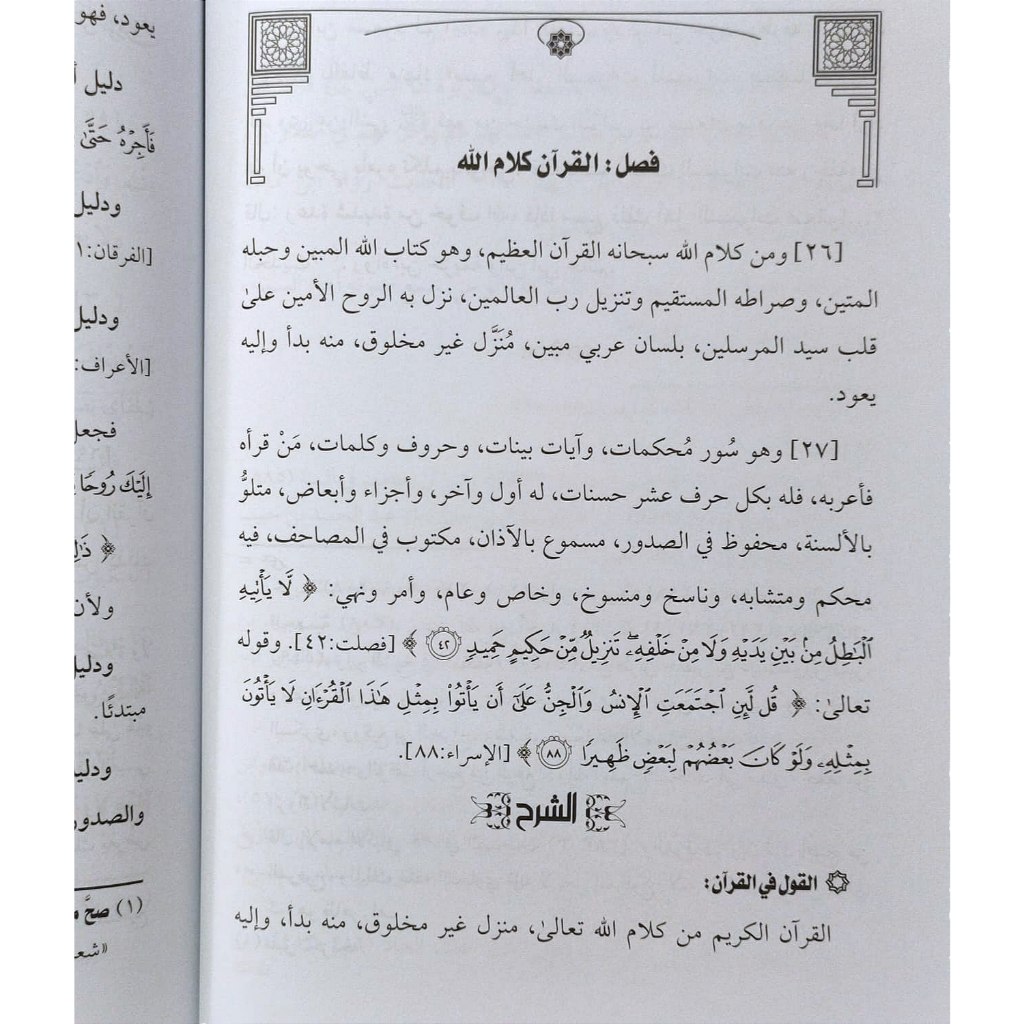 فصل: القرآن كلام الله
[٢٦] ومن كلام الله سبحانه القرآن العظيم، وهو كتاب الله المبين وحبله
المتين، وصراطه المستقيم وتنزيل رب العالمين، نزل به الروح الأمين علىٰ
قلب سيد المرسلين، بلسان عربي مبين، مُنَزَّل غير مخلوق، منه بدأ وإليه
يعود.
[٢٧] وهو سُور مُحكمات، وآيات بينات، وحروف وكلمات، مَنْ قرأه
فأعربه، فله بكل حرف عشر حسنات، له أول وآخر، وأجزاء وأبعاض، متلوُّ
بالألسنة، محفوظ في الصدور، مسموع بالآذان، مكتوب في المصاحف، فيه
محكم ومتشابه، وناسخ ومنسوخ، وخاص وعام، وأمر ونهي: ﴿ لَّا يَأۡتِيهِ
ٱلۡبَٰطِلُ مِنۢ بَيۡنِ يَدَيۡهِ وَلَا مِنۡ خَلۡفِهِۦۖ تَنزِيلٞ مِّنۡ حَكِيمٍ حَمِيدٖ ٤٢ ﴾ [فصلت:٤٢]. وقوله
تعالىٰ: ﴿ قُل لَّئِنِ ٱجۡتَمَعَتِ ٱلۡإِنسُ وَٱلۡجِنُّ عَلَىٰٓ أَن يَأۡتُواْ بِمِثۡلِ هَٰذَا ٱلۡقُرۡءَانِ لَا يَأۡتُونَ
بِمِثۡلِهِۦ وَلَوۡ كَانَ بَعۡضُهُمۡ لِبَعۡضٖ ظَهِيرٗا ٨٨ ﴾ [الإسراء:٨٨].
الشرح
القول في القرآن:
القرآن الكريم من كلام الله تعالىٰ، منزل غير مخلوق، منه بدأ، وإليه
يعود، فهو
دليل
فَأَجِرۡهُ حَتَّىٰ
ودليل
[الفرقان:١
ودليل
[الأعراف:
فجعل
إِلَيۡكَ رُوحٗا
﴿
ولأن
ودليل
مبتدئًا.
ودليل
والصدور
(١) صحَّ